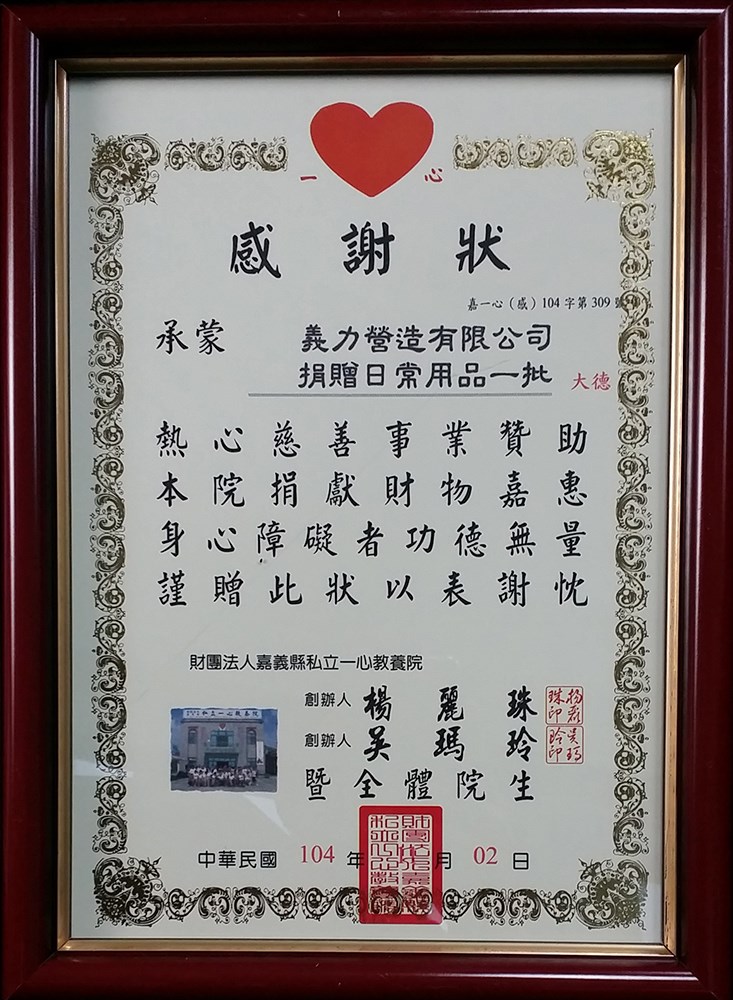 一 心
感謝狀
嘉一心(感)104字第309號
承蒙 義力營造有限公司
捐贈日常用品一批 大德
熱心慈善事業贊助
本院捐獻財物嘉惠
身心障礙者功德無量
謹贈此狀以表謝忱
財團法人嘉義縣私立一心教養院
創辦人 楊麗珠
創辦人 吳瑪玲
暨全體院生
中華民國 104 年 月 02 日